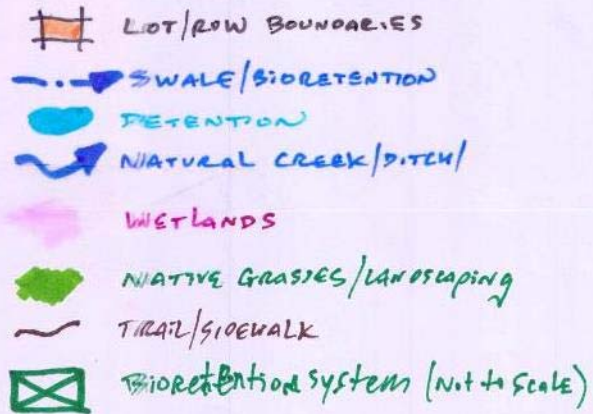 LOT/ROW BOUNDARIES
SWALE/BIORETENTION
DETENTION
NATURAL CREEK/DITCH/
WETLANDS
NATIVE GRASSES/LANDSCAPING
TRAIL/SIDEWALK
Bioretention system (Not to Scale)